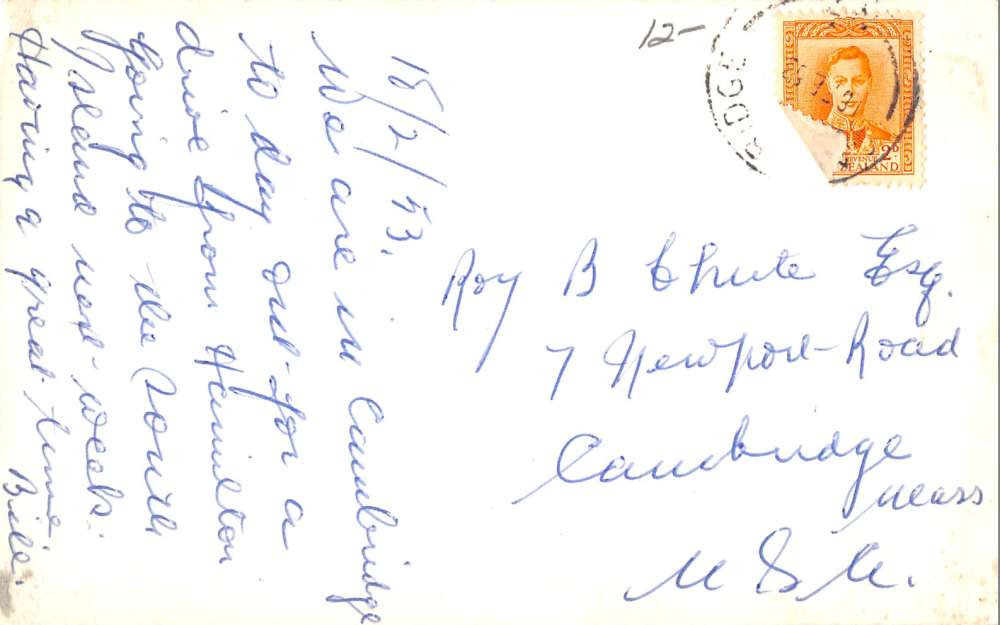 18/2/53.
We are in Cambridge
to day out for a
drive from Hamilton
Going to the South
Island next week.
Having a great time
Bill.
12-
Roy B Chute Esq.
7 Newport Road
Cambridge
Mass
U S A.
IDGE
REVENUE 2D
ZEALAND